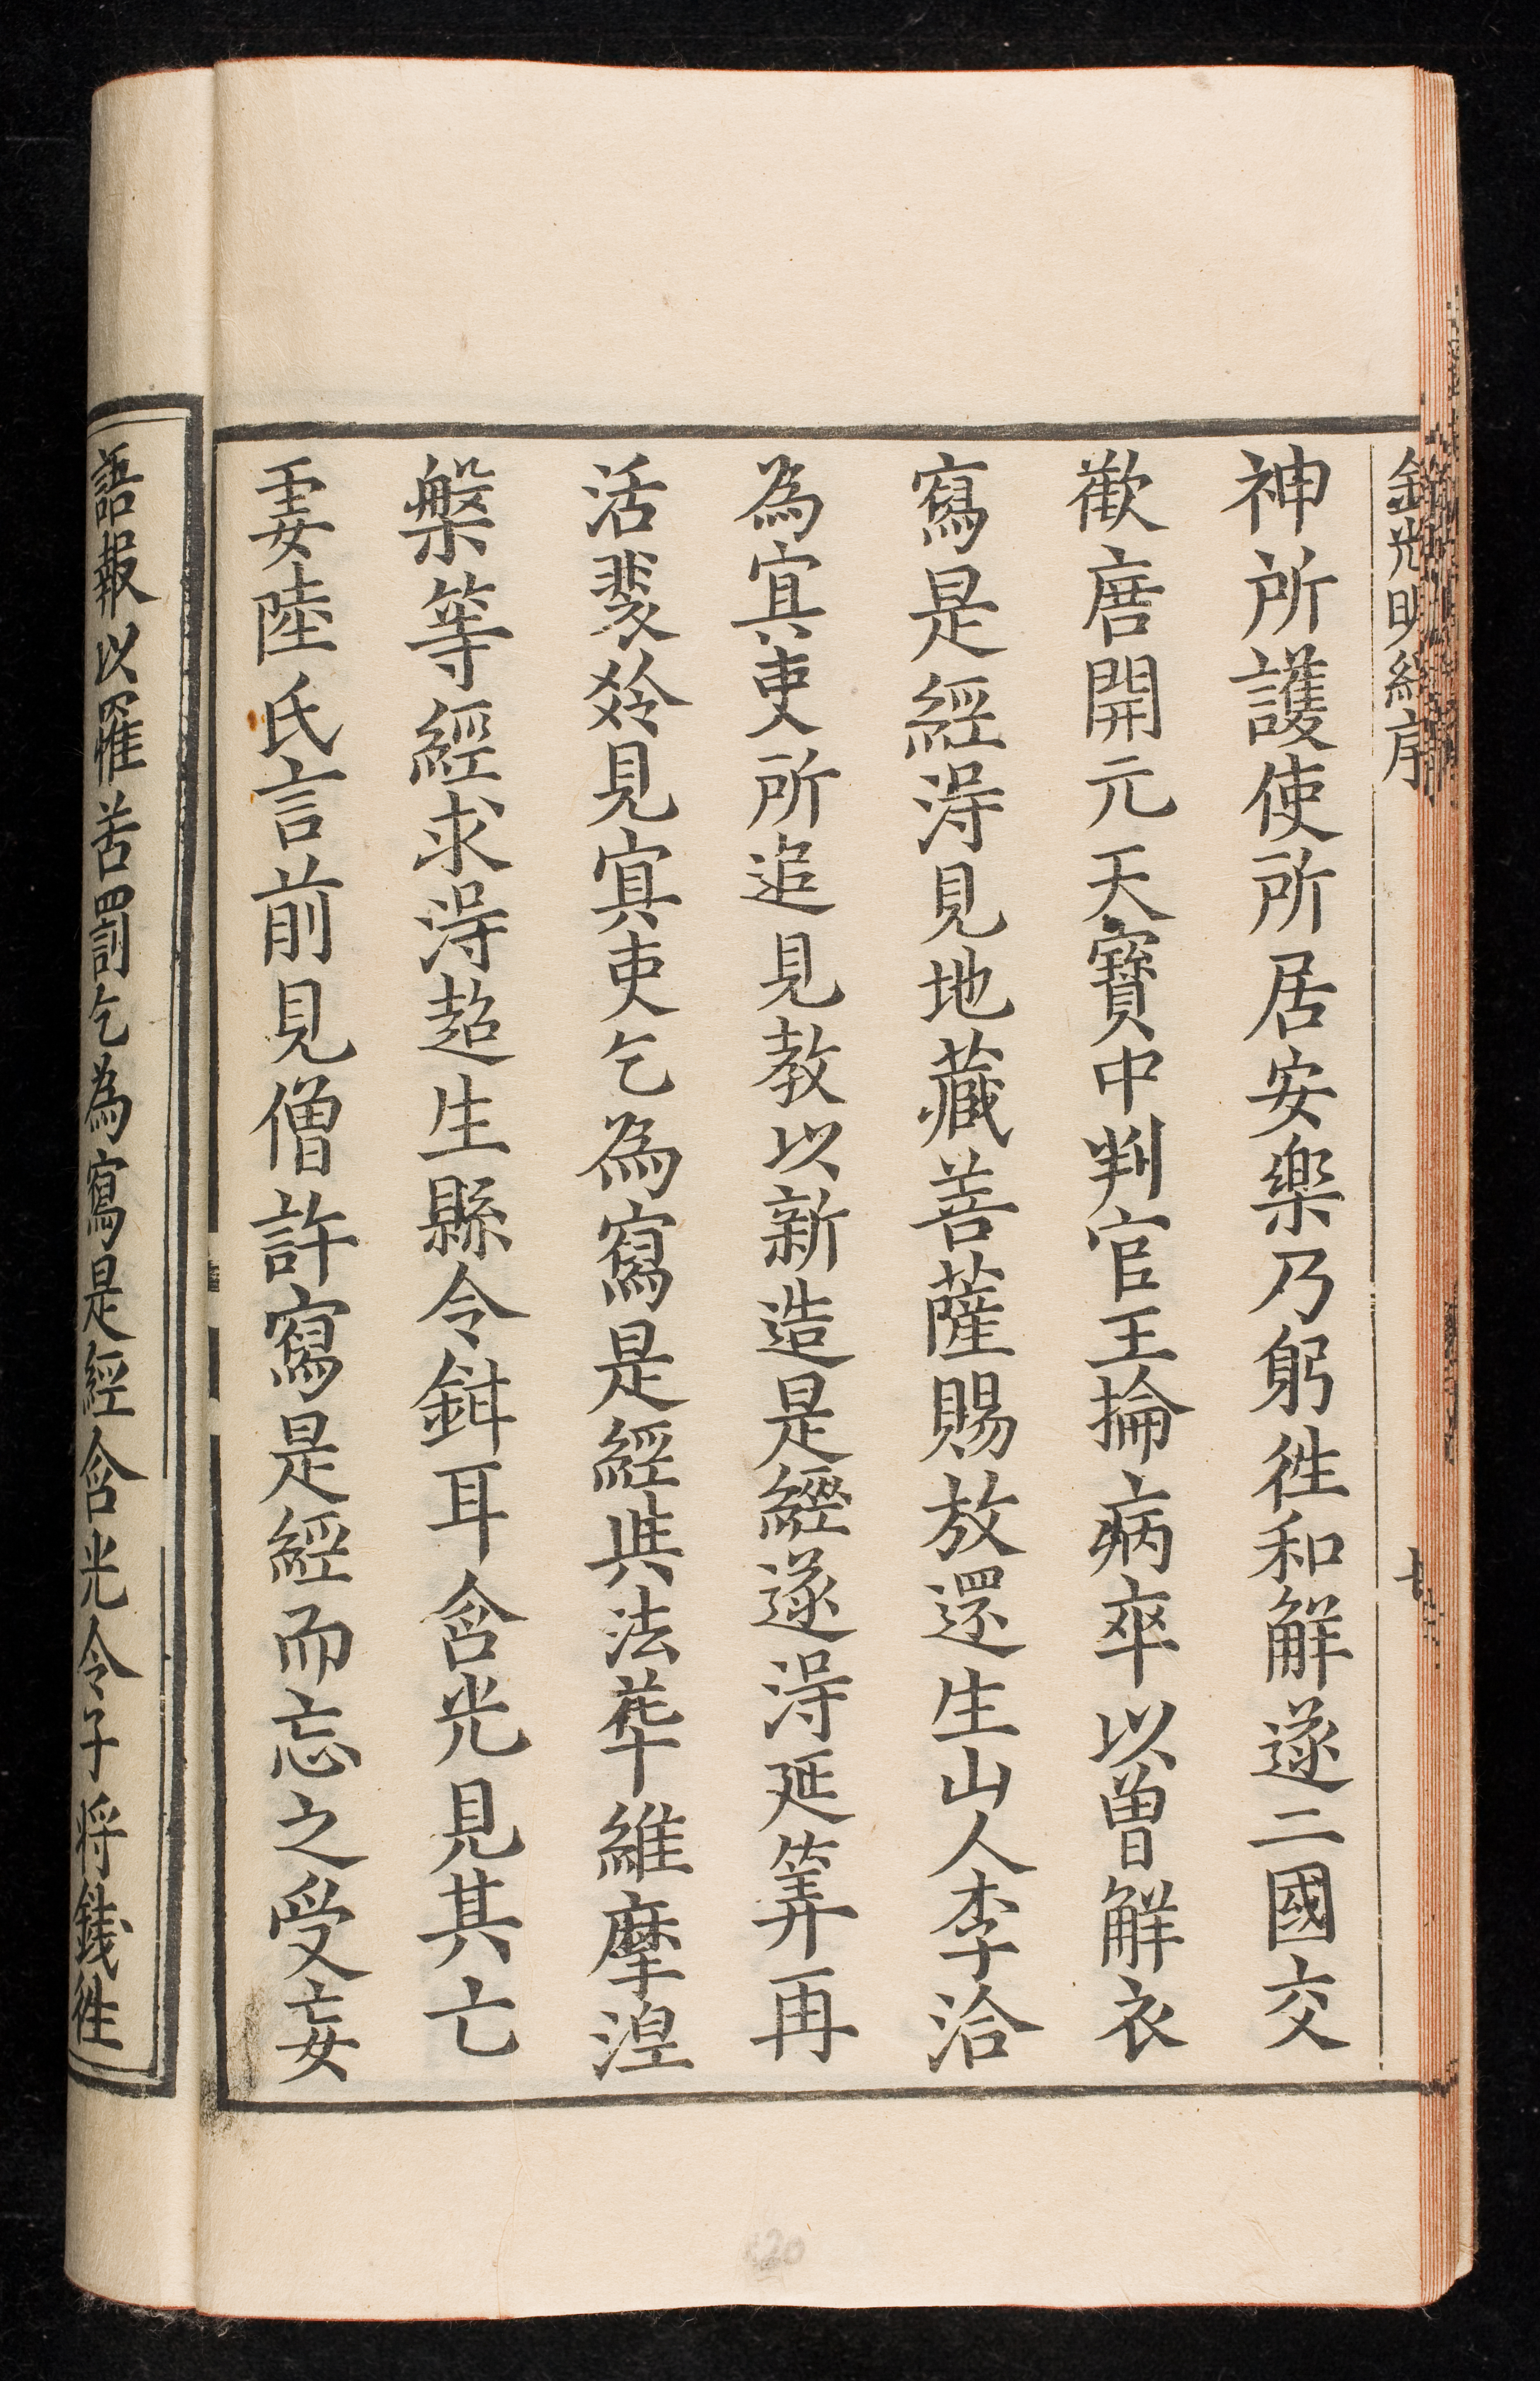 金光明經序
七
神所護使所居安樂乃躬徃和解遂二國交
歡唐開元天寶中判官王掄病卒以曾解衣
寫是經淂見地藏菩薩賜放還生山人李洽
為冥吏所追見教以新造是經遂淂延筭再
活裴𥹥見冥吏乞為寫是經與法華維摩涅
槃等經求淂超生縣令鉗耳含光見其亡
妻陸氏言前見僧許寫是經而忘之受妄
語報以罹苦罰乞為寫是經含光令子将錢徃
120